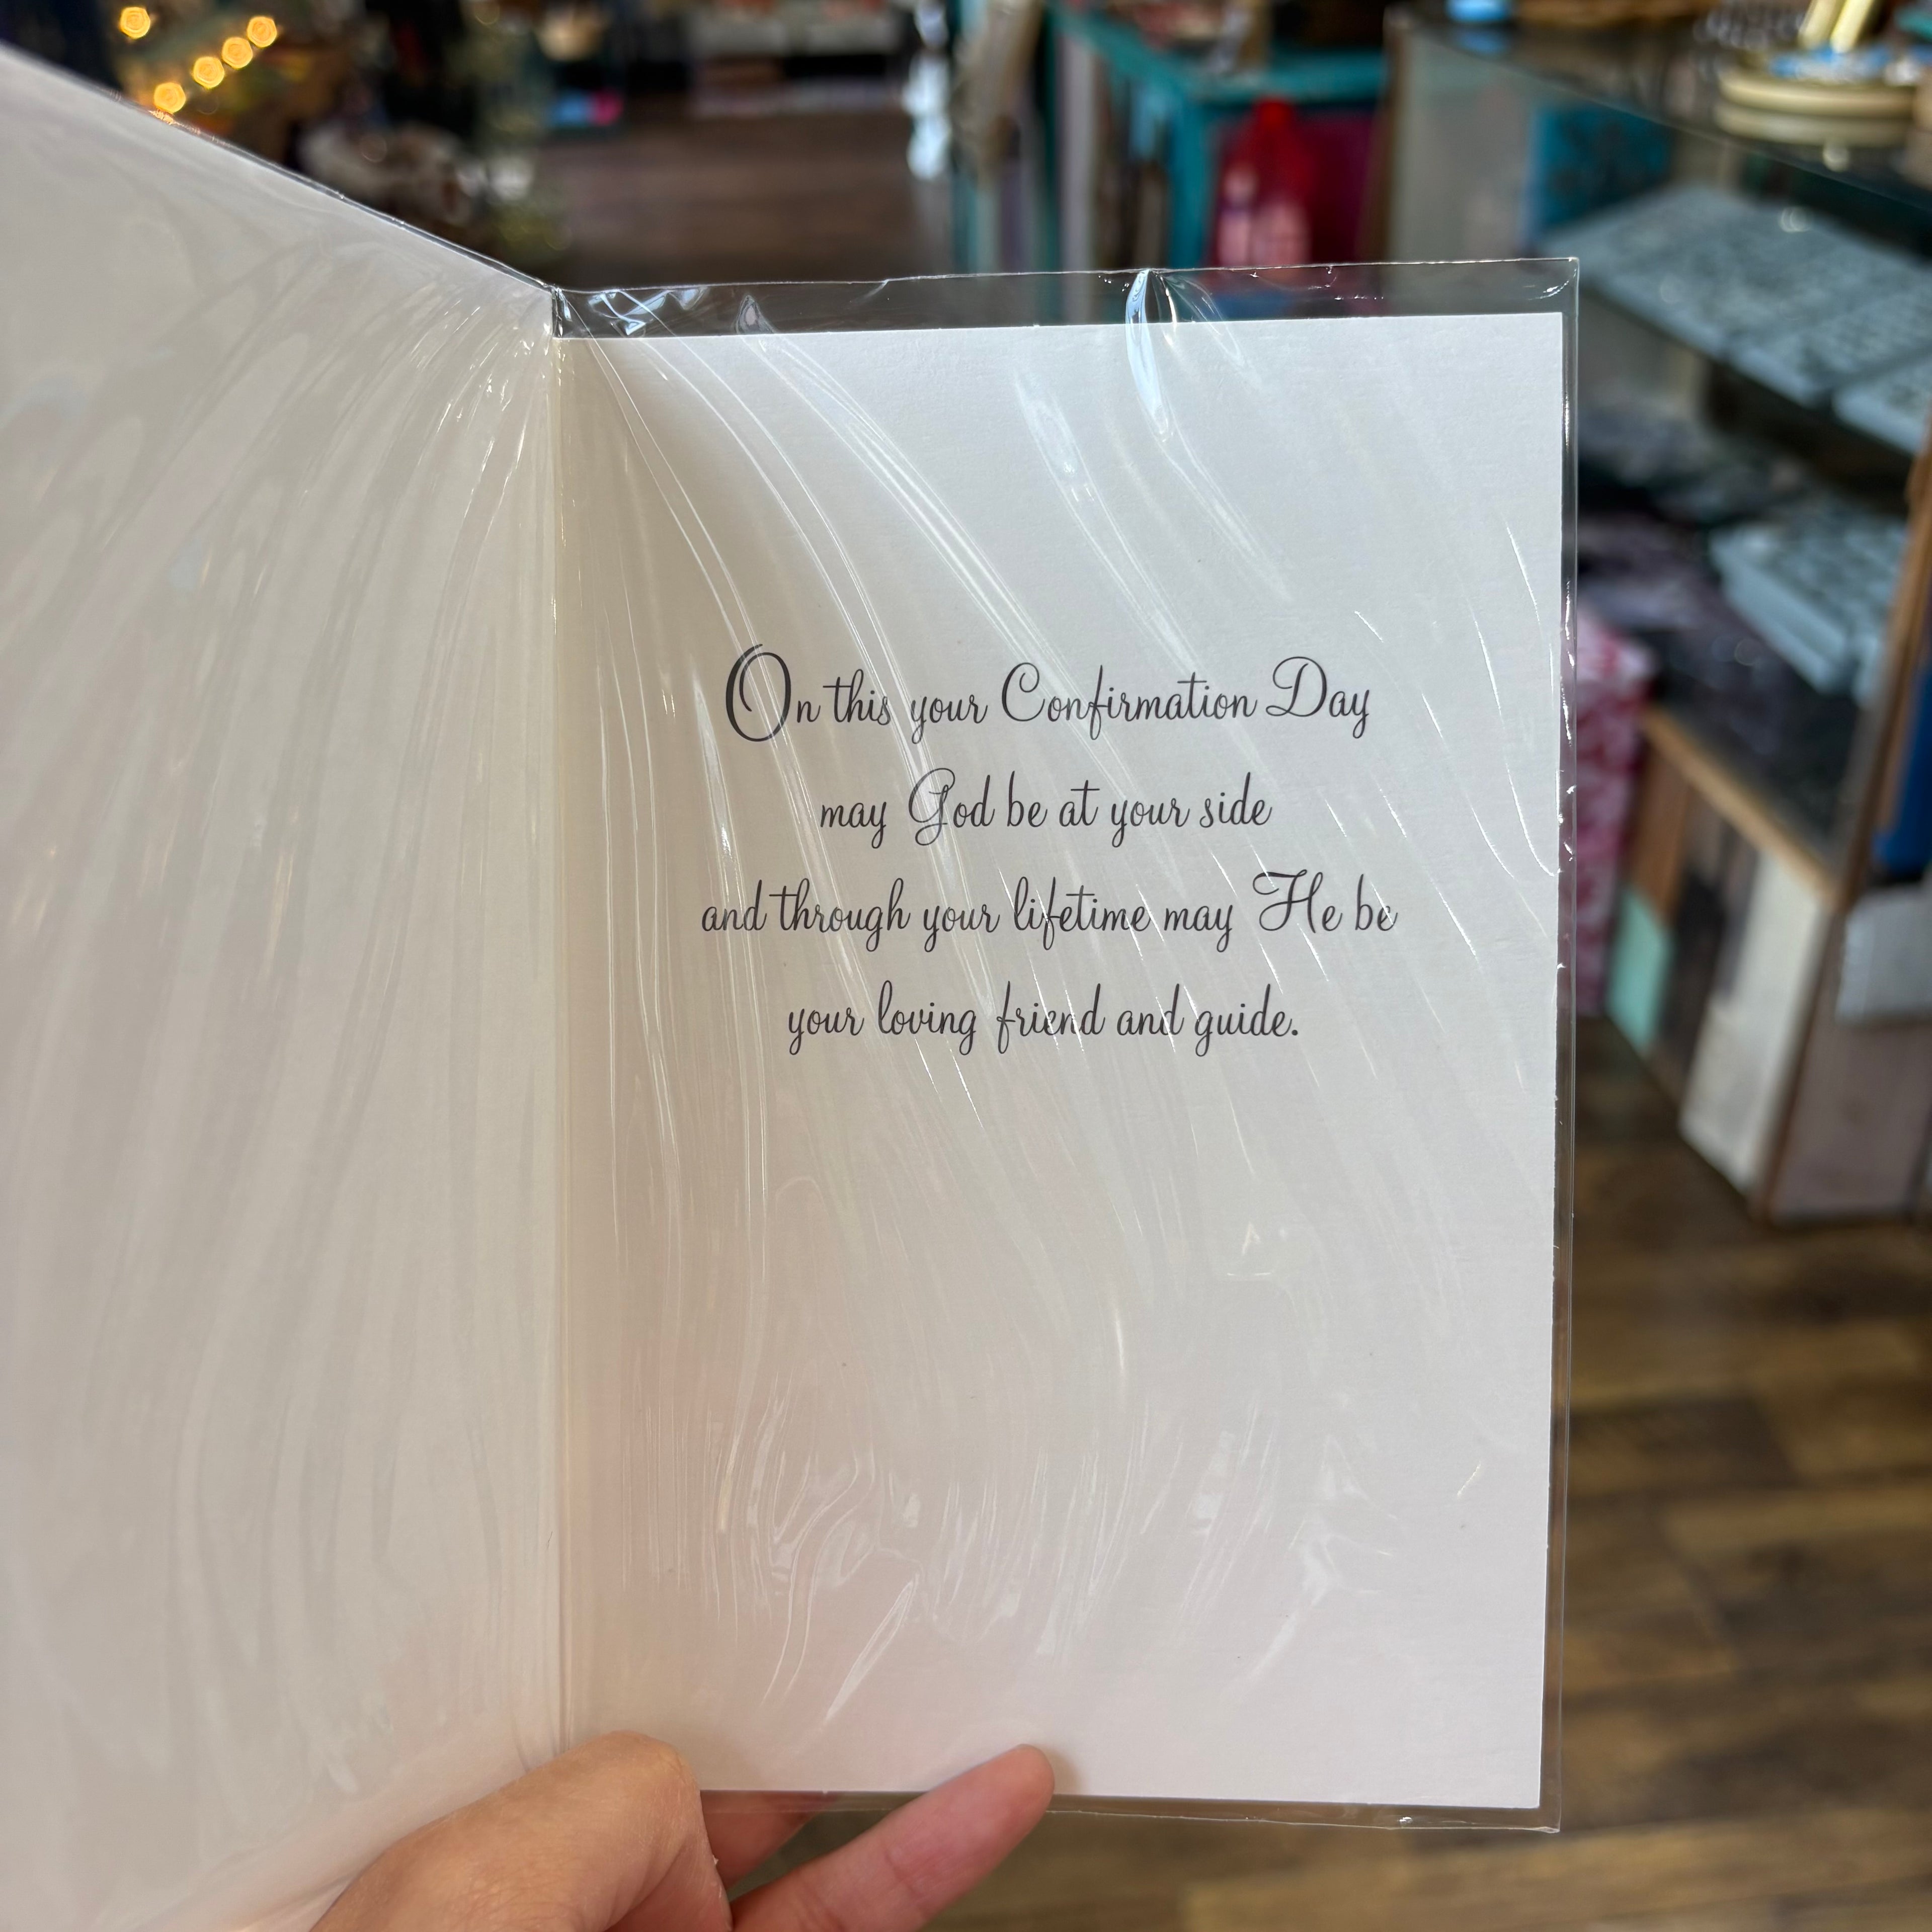 On this your Confirmation Day
may God be at your side
and through your lifetime may He be
your loving friend and guide.